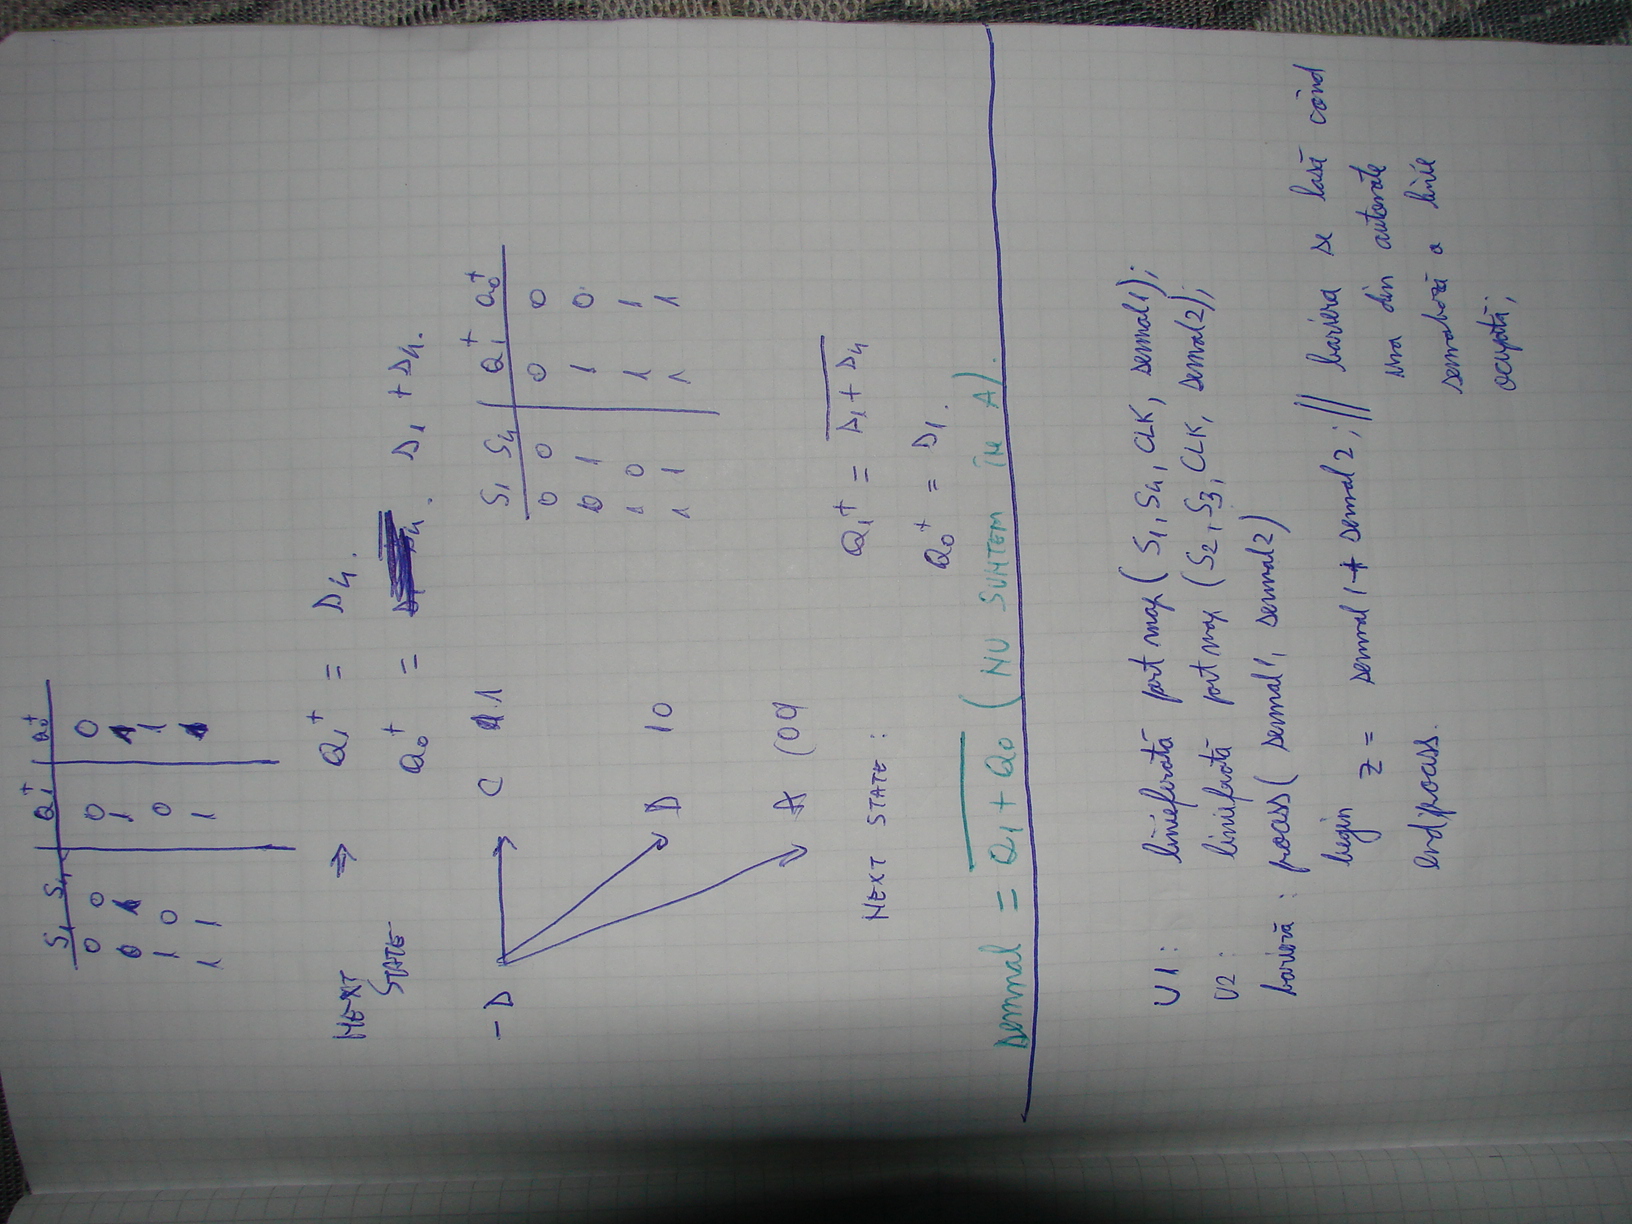 S1 S4 | Q1+ | Q0+
0 0 | 0 | 0
0 1 | 1 | 1
1 0 | 0 | 1
1 1 | 1 | 1
NEXT STATE ⇒ Q1+ = S4.
Q0+ = S1 + S4.
- D → C 11
D 10
A (00)
S1 S4 | Q1+ Q0+
0 0 | 0 0
0 1 | 1 0
1 0 | 1 1
1 1 | 1 1
NEXT STATE :
Q1+ = \overline{S1 + S4}
Q0+ = S1.
semnal = \overline{Q1 + Q0} ( NU SUNTEM ÎN A).
U1 : linieferată port map ( S1, S4, CLK, semnal1);
U2 : linieferată port map (S2, S3, CLK, semnal2);
barieră : process( semnal1, semnal2)
begin
z = semnal1 + semnal2; // bariera se lasă când
una din automate
semnaleză o linie
ocupată;
end process.